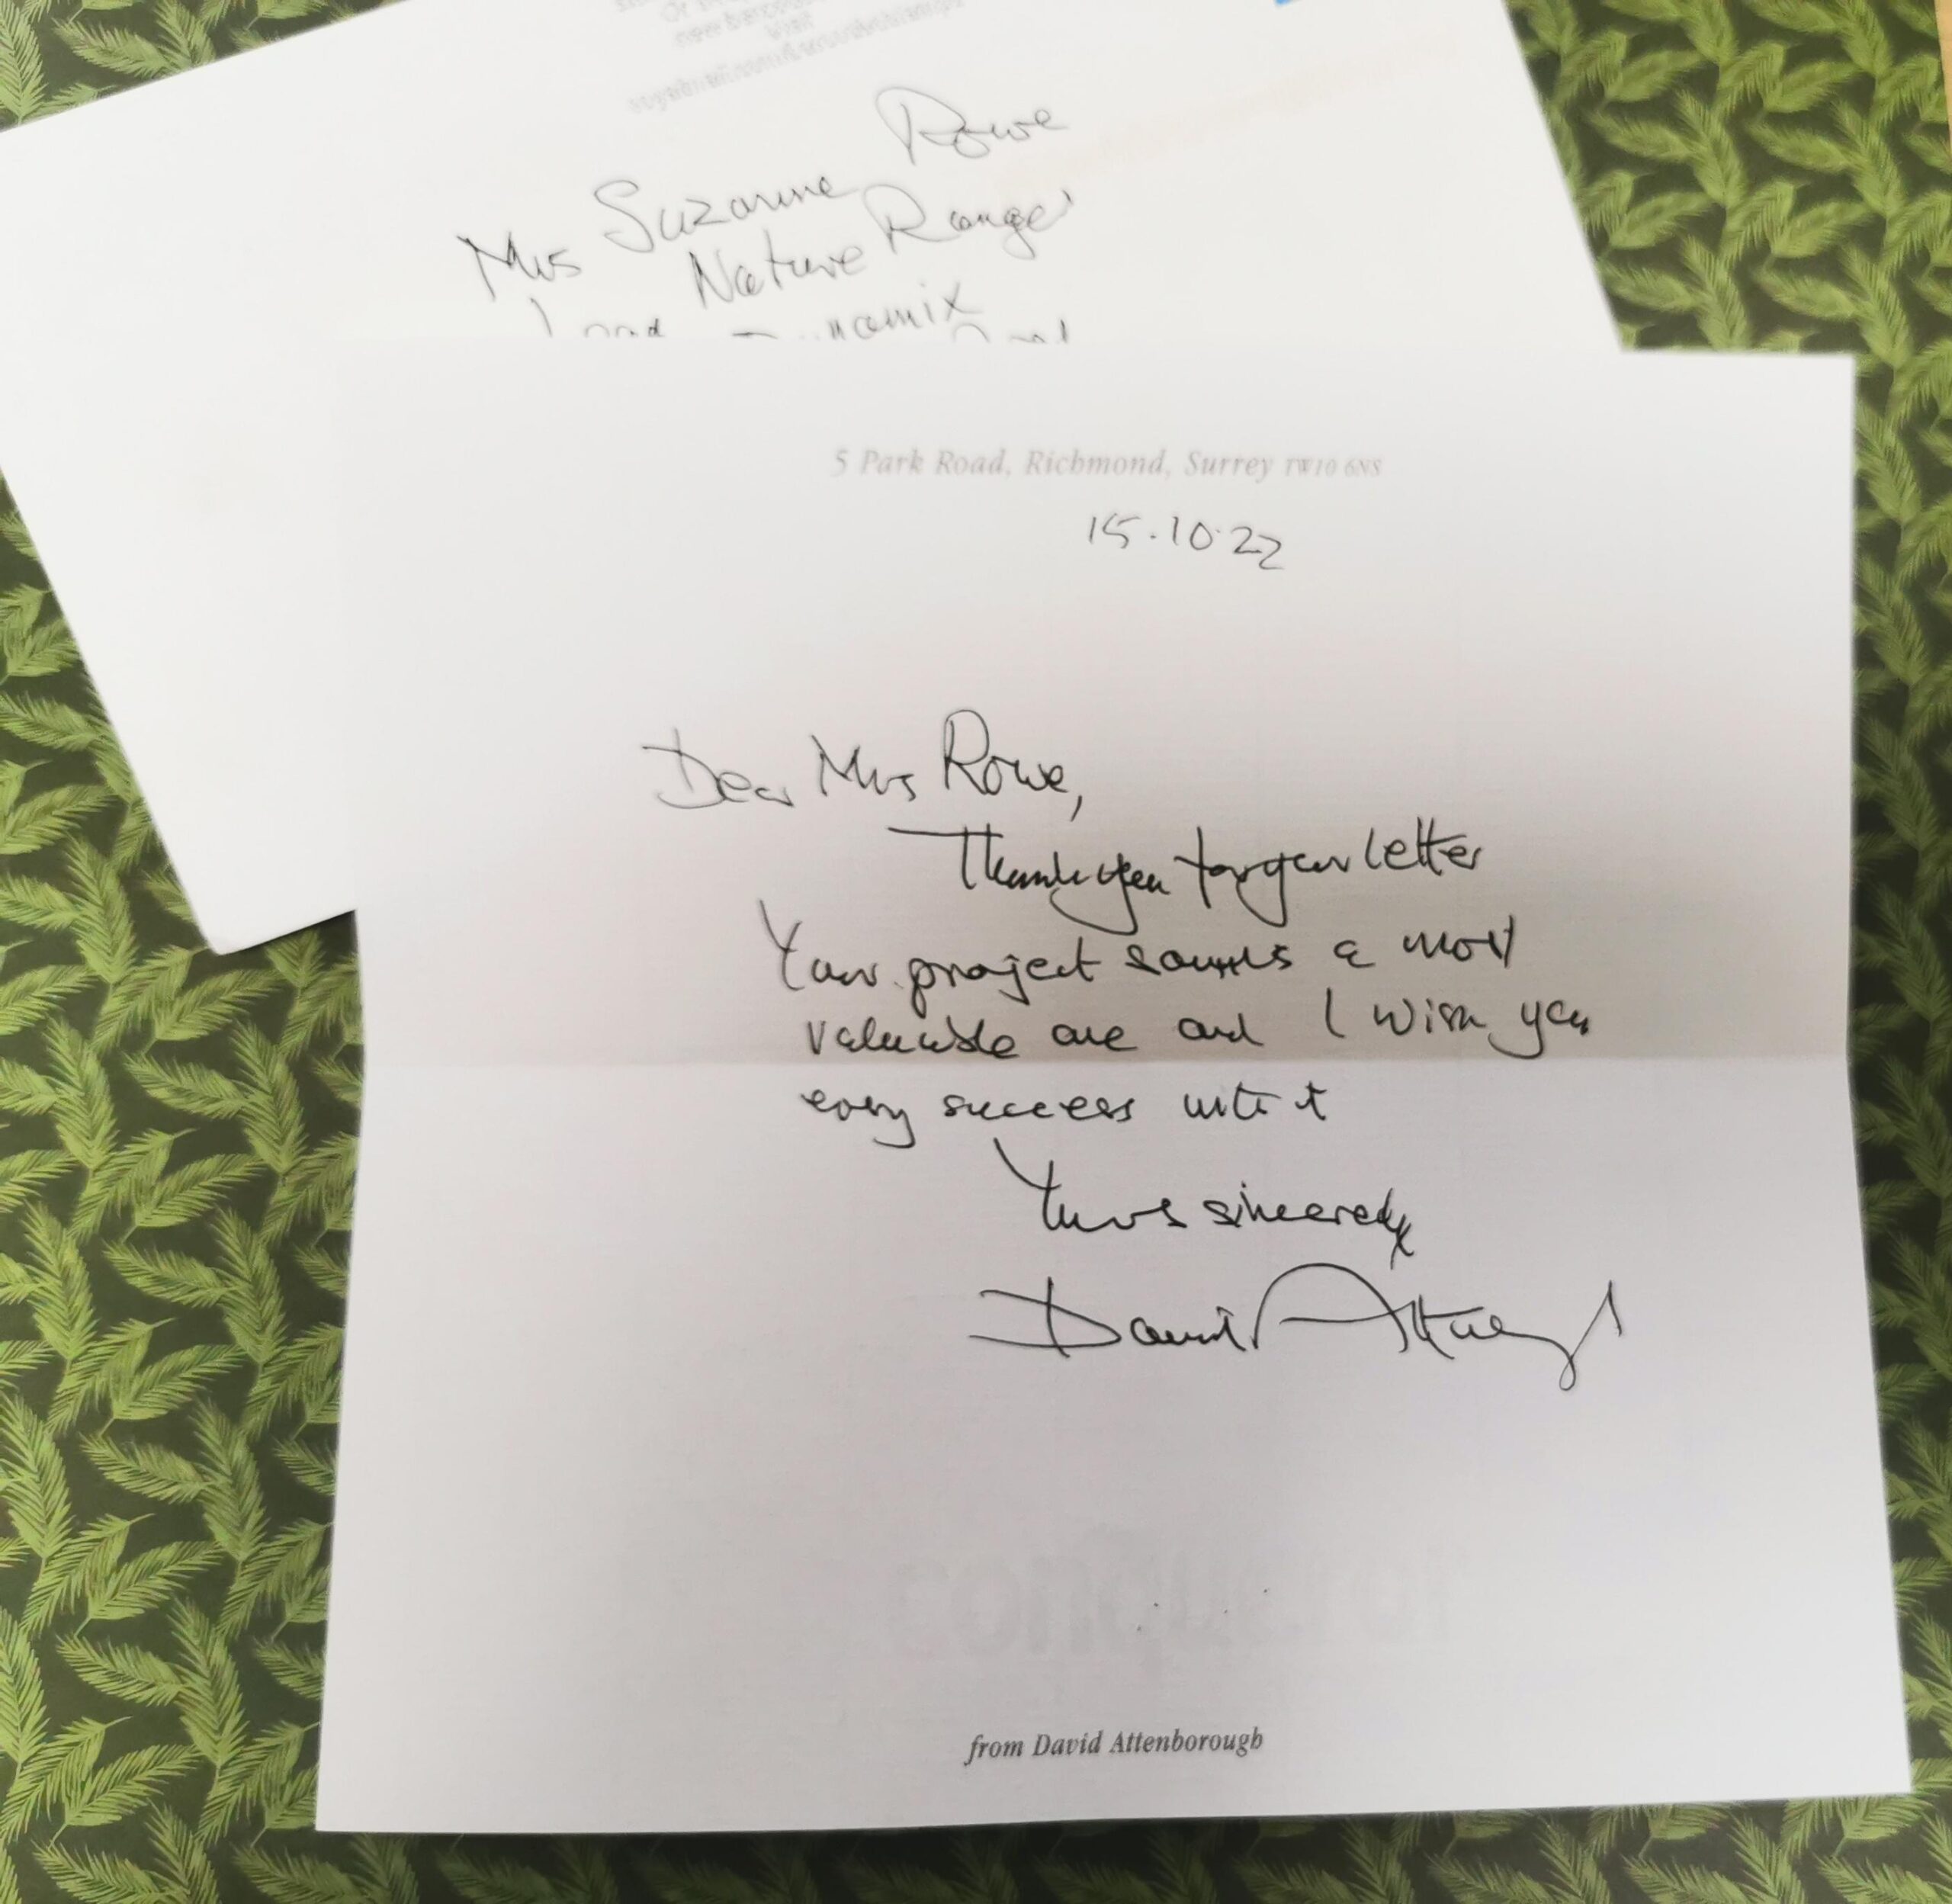 new barcoded
visit
Mrs Suzanne Rowe
Nature Ranger
5 Park Road, Richmond, Surrey TW10 6NS
15.10.22
Dear Mrs Rowe,
Thank you for your letter
Your project sounds a most
valuable one and I wish you
every success with it
Yours sincerely
David Attenborough
from David Attenborough